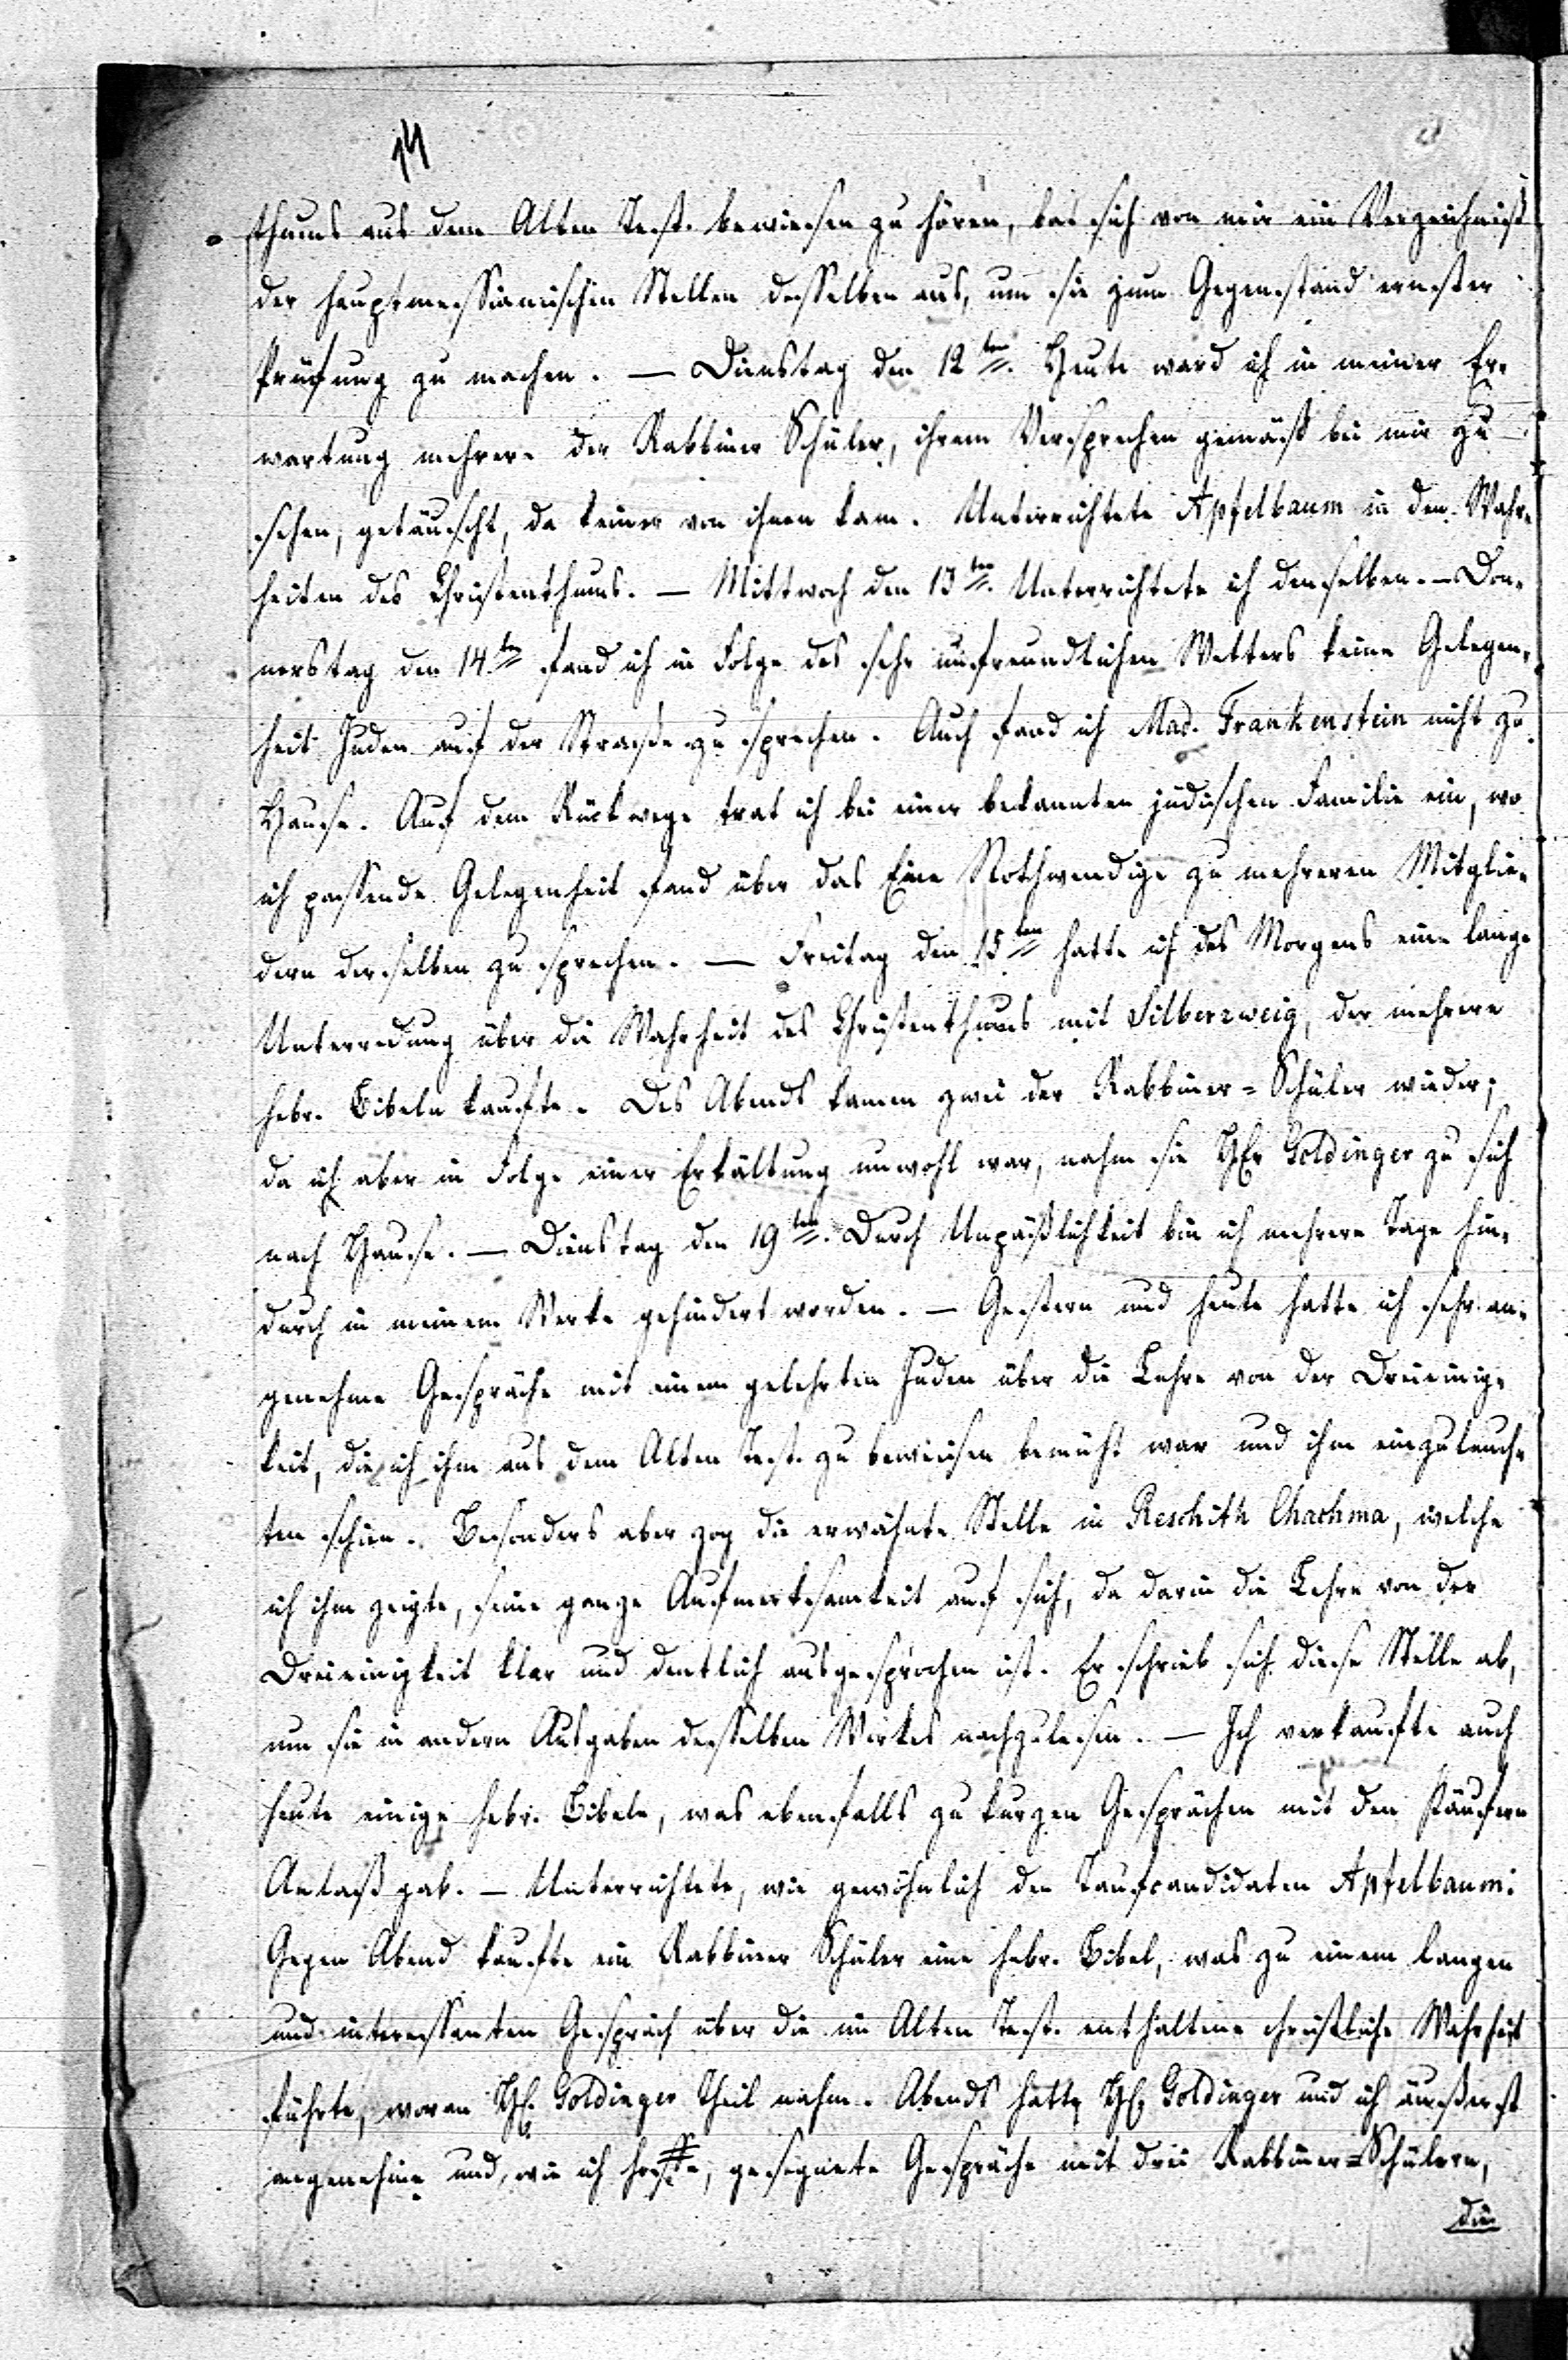 14
thums aus dem Alten Test. bewiesen zu hören, bat sich von mir ein Verzeichniß
der hauptmessianischen Stellen desselben aus, um sie zum Gegenstand ernster
Prüfung zu machen. — Dienstag den 12ten. Heute ward ich in meiner Er-
wartung mehrere der Rabbiner Schüler, ihrem Versprechen gemäß bei mir zu
sehen, getäuscht, da keiner von ihnen kam. Unterrichtete Apfelbaum in den Wahr-
heiten des Christenthums. — Mittwoch den 13ten. Unterrichtete ich denselben. — Don-
nerstag den 14ten fand ich in Folge des sehr unfreundlichen Wetters keine Gelegen-
heit Juden auf der Straße zu sprechen. Auch fand ich Mad. Frankenstein nicht zu
Hause. Auf dem Rückwege trat ich bei einer bekannten jüdischen Familie ein, wo
ich passende Gelegenheit fand über das Eine Nothwendige zu mehreren Mitglie-
dern derselben zu sprechen. — Freitag den 15ten hatte ich des Morgens eine lange
Unterredung über die Wahrheit des Christenthums mit Silberzweig, der mehrere
hebr. Bibeln kaufte. Des Abends kamen zwei der Rabbiner-Schüler wieder;
da ich aber in Folge einer Erkältung unwohl war, nahm sie Hr Goldinger zu sich
nach Hause. — Dienstag den 19ten. Durch Unpäßlichkeit bin ich mehrere Tage hin-
durch in meinem Werke gehindert worden. — Gestern und heute hatte ich sehr an-
genehme Gespräche mit einem gelehrten Juden über die Lehre von der Dreieinig-
keit, die ich ihm aus dem Alten Test. zu beweisen bemüht war und ihm einzuleuch-
ten schien. Besonders aber zog die erwähnte Stelle in Reschith Chachma, welche
ich ihm zeigte, seine ganze Aufmerksamkeit auf sich, da darin die Lehre von der
Dreieinigkeit klar und deutlich ausgesprochen ist. Er schrieb sich diese Stelle ab,
um sie in andern Ausgaben desselben Werkes nachzulesen. — Ich verkaufte auch
heute einige hebr. Bibeln, was ebenfalls zu kurzen Gesprächen mit den Käufern
Anlaß gab. — Unterrichtete, wie gewöhnlich den Taufcandidaten Apfelbaum.
Gegen Abend kaufte ein Rabbiner Schüler eine hebr. Bibel, was zu einem langen
und interessanten Gespräch über die im Alten Test. enthaltene christliche Wahrheit
führte, woran H. Goldinger Theil nahm. Abends hatte H. Goldinger und ich äußerst
angenehme und, wie ich hoffe, gesegnete Gespräche mit drei Rabbiner-Schülern,
die